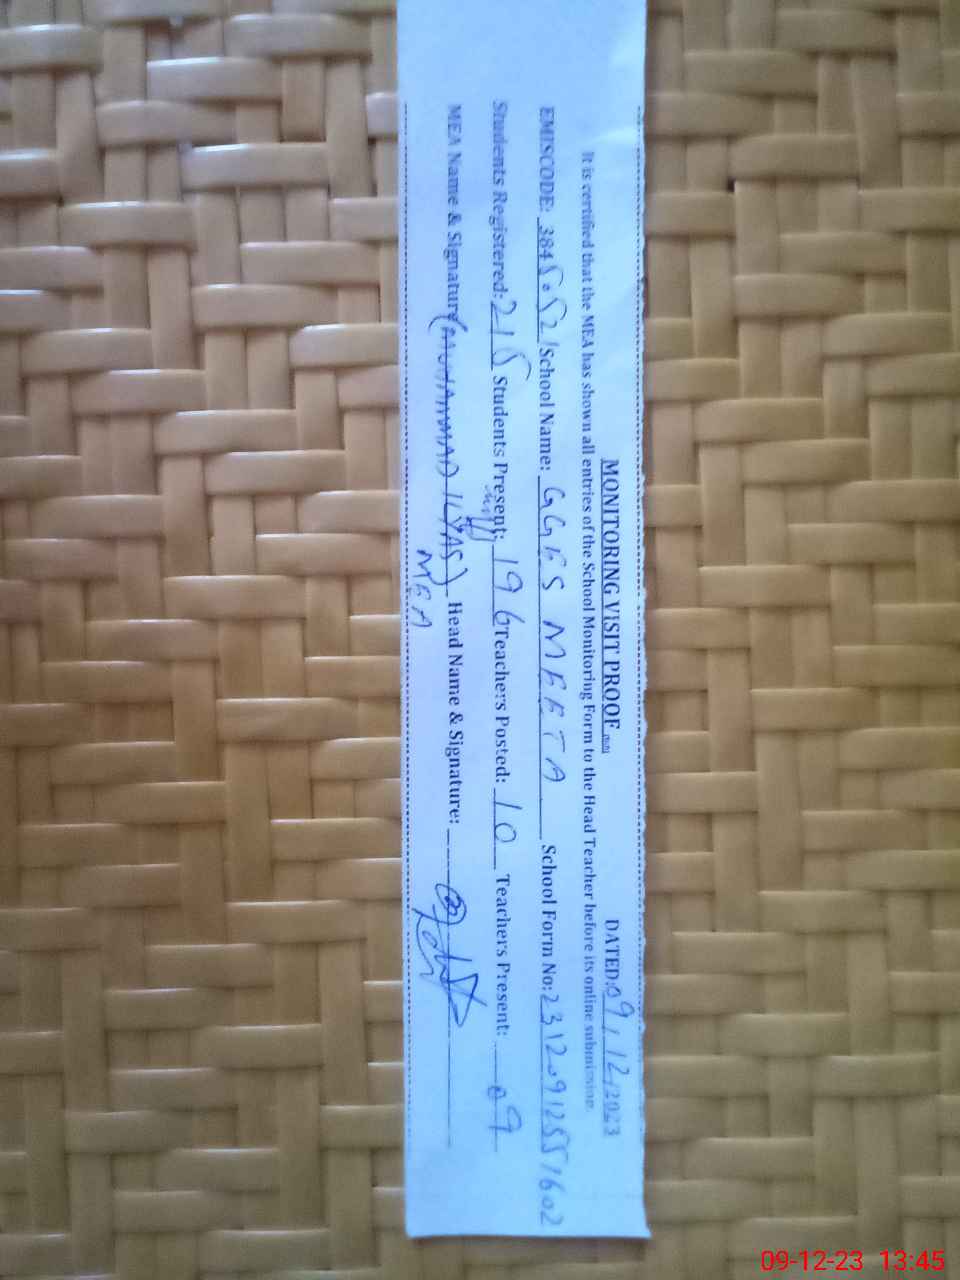 MONITORING VISIT PROOF DATED: 09/12/2023
It is certified that the MEA has shown all entries of the School Monitoring Form to the Head Teacher before its online submission.
EMISCODE: 38450521 School Name: GGES MEETA School Form No: 23120912551602
Students Registered: 215 Students Present: 196 Teachers Posted: 10 Teachers Present: 09
MEA Name & Signature (MUHAMMAD ILYAS) Head Name & Signature:
MEA
09-12-23 13:45